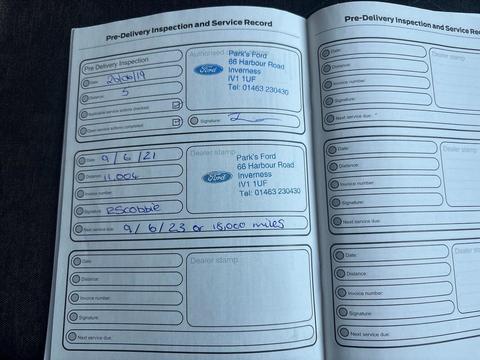 Pre-Delivery Inspection and Service Record
Pre Delivery Inspection
Date: 20/06/19
Distance: 5
Applicable service actions checked:
Open service actions completed:
Authorised
Ford
Park's Ford
66 Harbour Road
Inverness
IV1 1UF
Tel: 01463 230430
Signature:
Date: 9/6/21
Distance: 11,004
Invoice number:
Signature: RScobbie
Next service due: 9/6/23 or 18,000 miles
Dealer stamp
Ford
Park's Ford
66 Harbour Road
Inverness
IV1 1UF
Tel: 01463 230430
Date:
Distance:
Invoice number:
Signature:
Next service due:
Dealer stamp
Pre-Delivery Inspection and Service Rec
Date:
Distance:
Invoice number:
Signature:
Next service due:
Dealer stamp
Date:
Distance:
Invoice number:
Signature:
Next service due:
Dealer stamp
Date:
Distance:
Invoice number:
Signature:
Next service due:
Dealer stamp